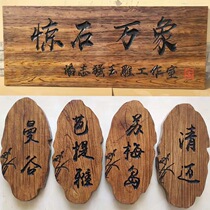 惊石万象
志强玉雕工作室
曼谷
芭提雅
苏梅岛
清迈